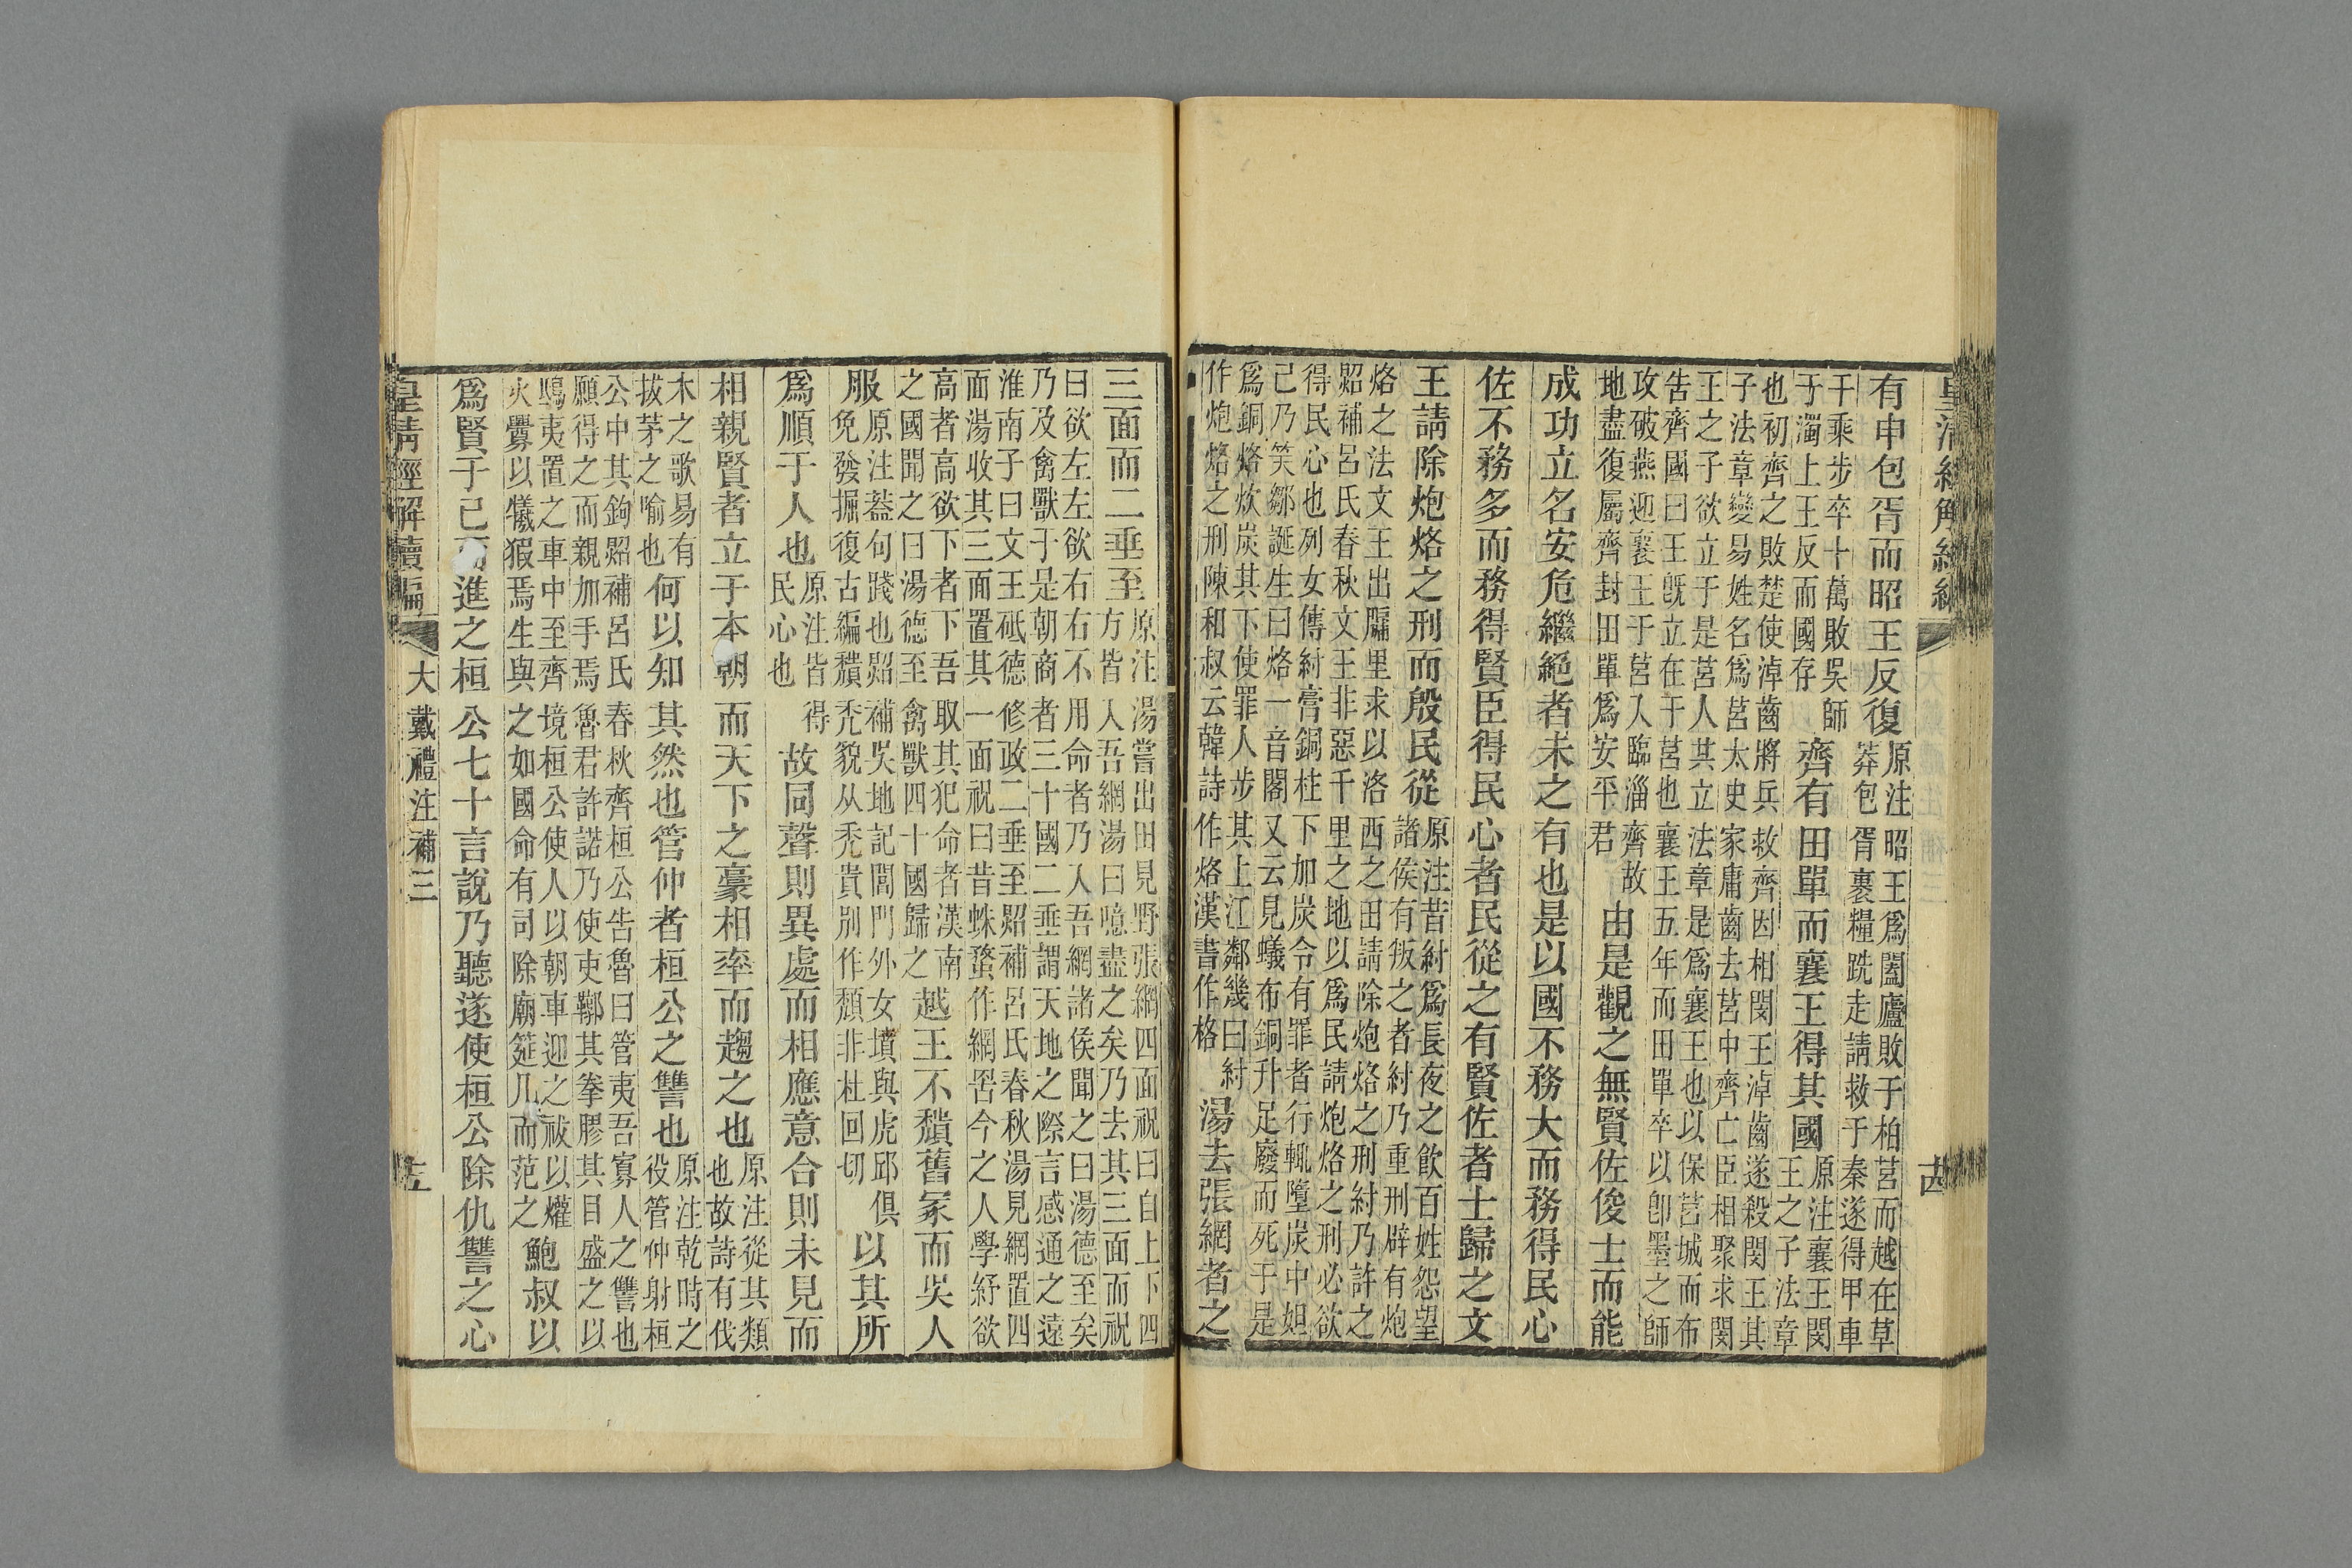 有申包胥而昭王反復
原注昭王爲闔廬敗于柏莒而越在草
莽包胥裹糧跣走請救于秦遂得甲車
千乘步卒十萬敗吳師
于濁上王反而國存
齊有田單而襄王得其國
原注襄王閔
王之子法章
也初齊之敗楚使淖齒將兵救齊因相閔王淖齒遂殺閔王其
子法章變易姓名爲莒太史家庸齒去莒中齊亡臣相聚求閔
王之子欲立于是莒人其立法章是爲襄王也以保莒城而布
告齊國曰王旣立在于莒也襄王五年而田單卒以卽墨之師
攻破燕迎襄王于莒入臨淄齊故
地盡復屬齊封田單爲安平君
由是觀之無賢佐俊士而能
成功立名安危繼絕者未之有也是以國不務大而務得民心
佐不務多而務得賢臣得民心者民從之有賢佐者士歸之文
王請除炮烙之刑而殷民從
原注昔紂爲長夜之飲百姓怨望
諸侯有叛之者紂乃重刑辟有炮
烙之法文王出牖里求以洛西之田請除炮烙之刑紂乃許之
炤補呂氏春秋文王非惡千里之地以爲民請炮烙之刑必欲
得民心也列女傳紂膏銅柱下加炭令有罪者行輒墮炭中妲
己乃笑鄒誕生曰烙一音閣又云見蟻布銅升足廢而死于是
爲銅烙炊炭其下使罪人步其上江鄰幾曰紂
作炮烙之刑陳和叔云韓詩作烙漢書作格
湯去張網者之
三面而二垂至
原注湯嘗出田見野張網四面祝曰自上下四
方皆入吾網湯曰噫盡之矣乃去其三面而祝
曰欲左左欲右右不用命者乃入吾網諸侯聞之曰湯德至矣
乃及禽獸于是朝商者三十國二垂謂天地之際言感通之遠
淮南子曰文王砥德修政二垂至炤補呂氏春秋湯見網置四
面湯收其三面置其一面祝曰昔蛛蝥作網罟今之人學紓欲
高者高欲下者下吾取其犯命者漢南
之國聞之曰湯德至禽獸四十國歸之
越王不頹舊冢而吳人
服
原注蓋句踐也炤補吳地記閶門外女墳與虎邱俱
免發掘復古編穨秃貌从秃貴別作頹非杜回切
以其所
爲順于人也
原注皆得
民心也
故同聲則異處而相應意合則未見而
相親賢者立于本朝而天下之豪相率而趨之也
原注從其類
也故詩有伐
木之歌易有
拔茅之喻也
何以知其然也管仲者桓公之讐也
原注乾時之
役管仲射桓
公中其鉤炤補呂氏春秋齊桓公告魯曰管夷吾寡人之讐也
願得之而親加手焉魯君許諾乃使吏鞹其拳膠其目盛之以
鴟夷置之車中至齊境桓公使人以朝車迎之祓以爟
火釁以犧猳焉生與之如國命有司除廟筵几而范之
鮑叔以
爲賢于己進之桓公七十言說乃聽遂使桓公除仇讐之心
皇清經解續編
大戴禮注補三